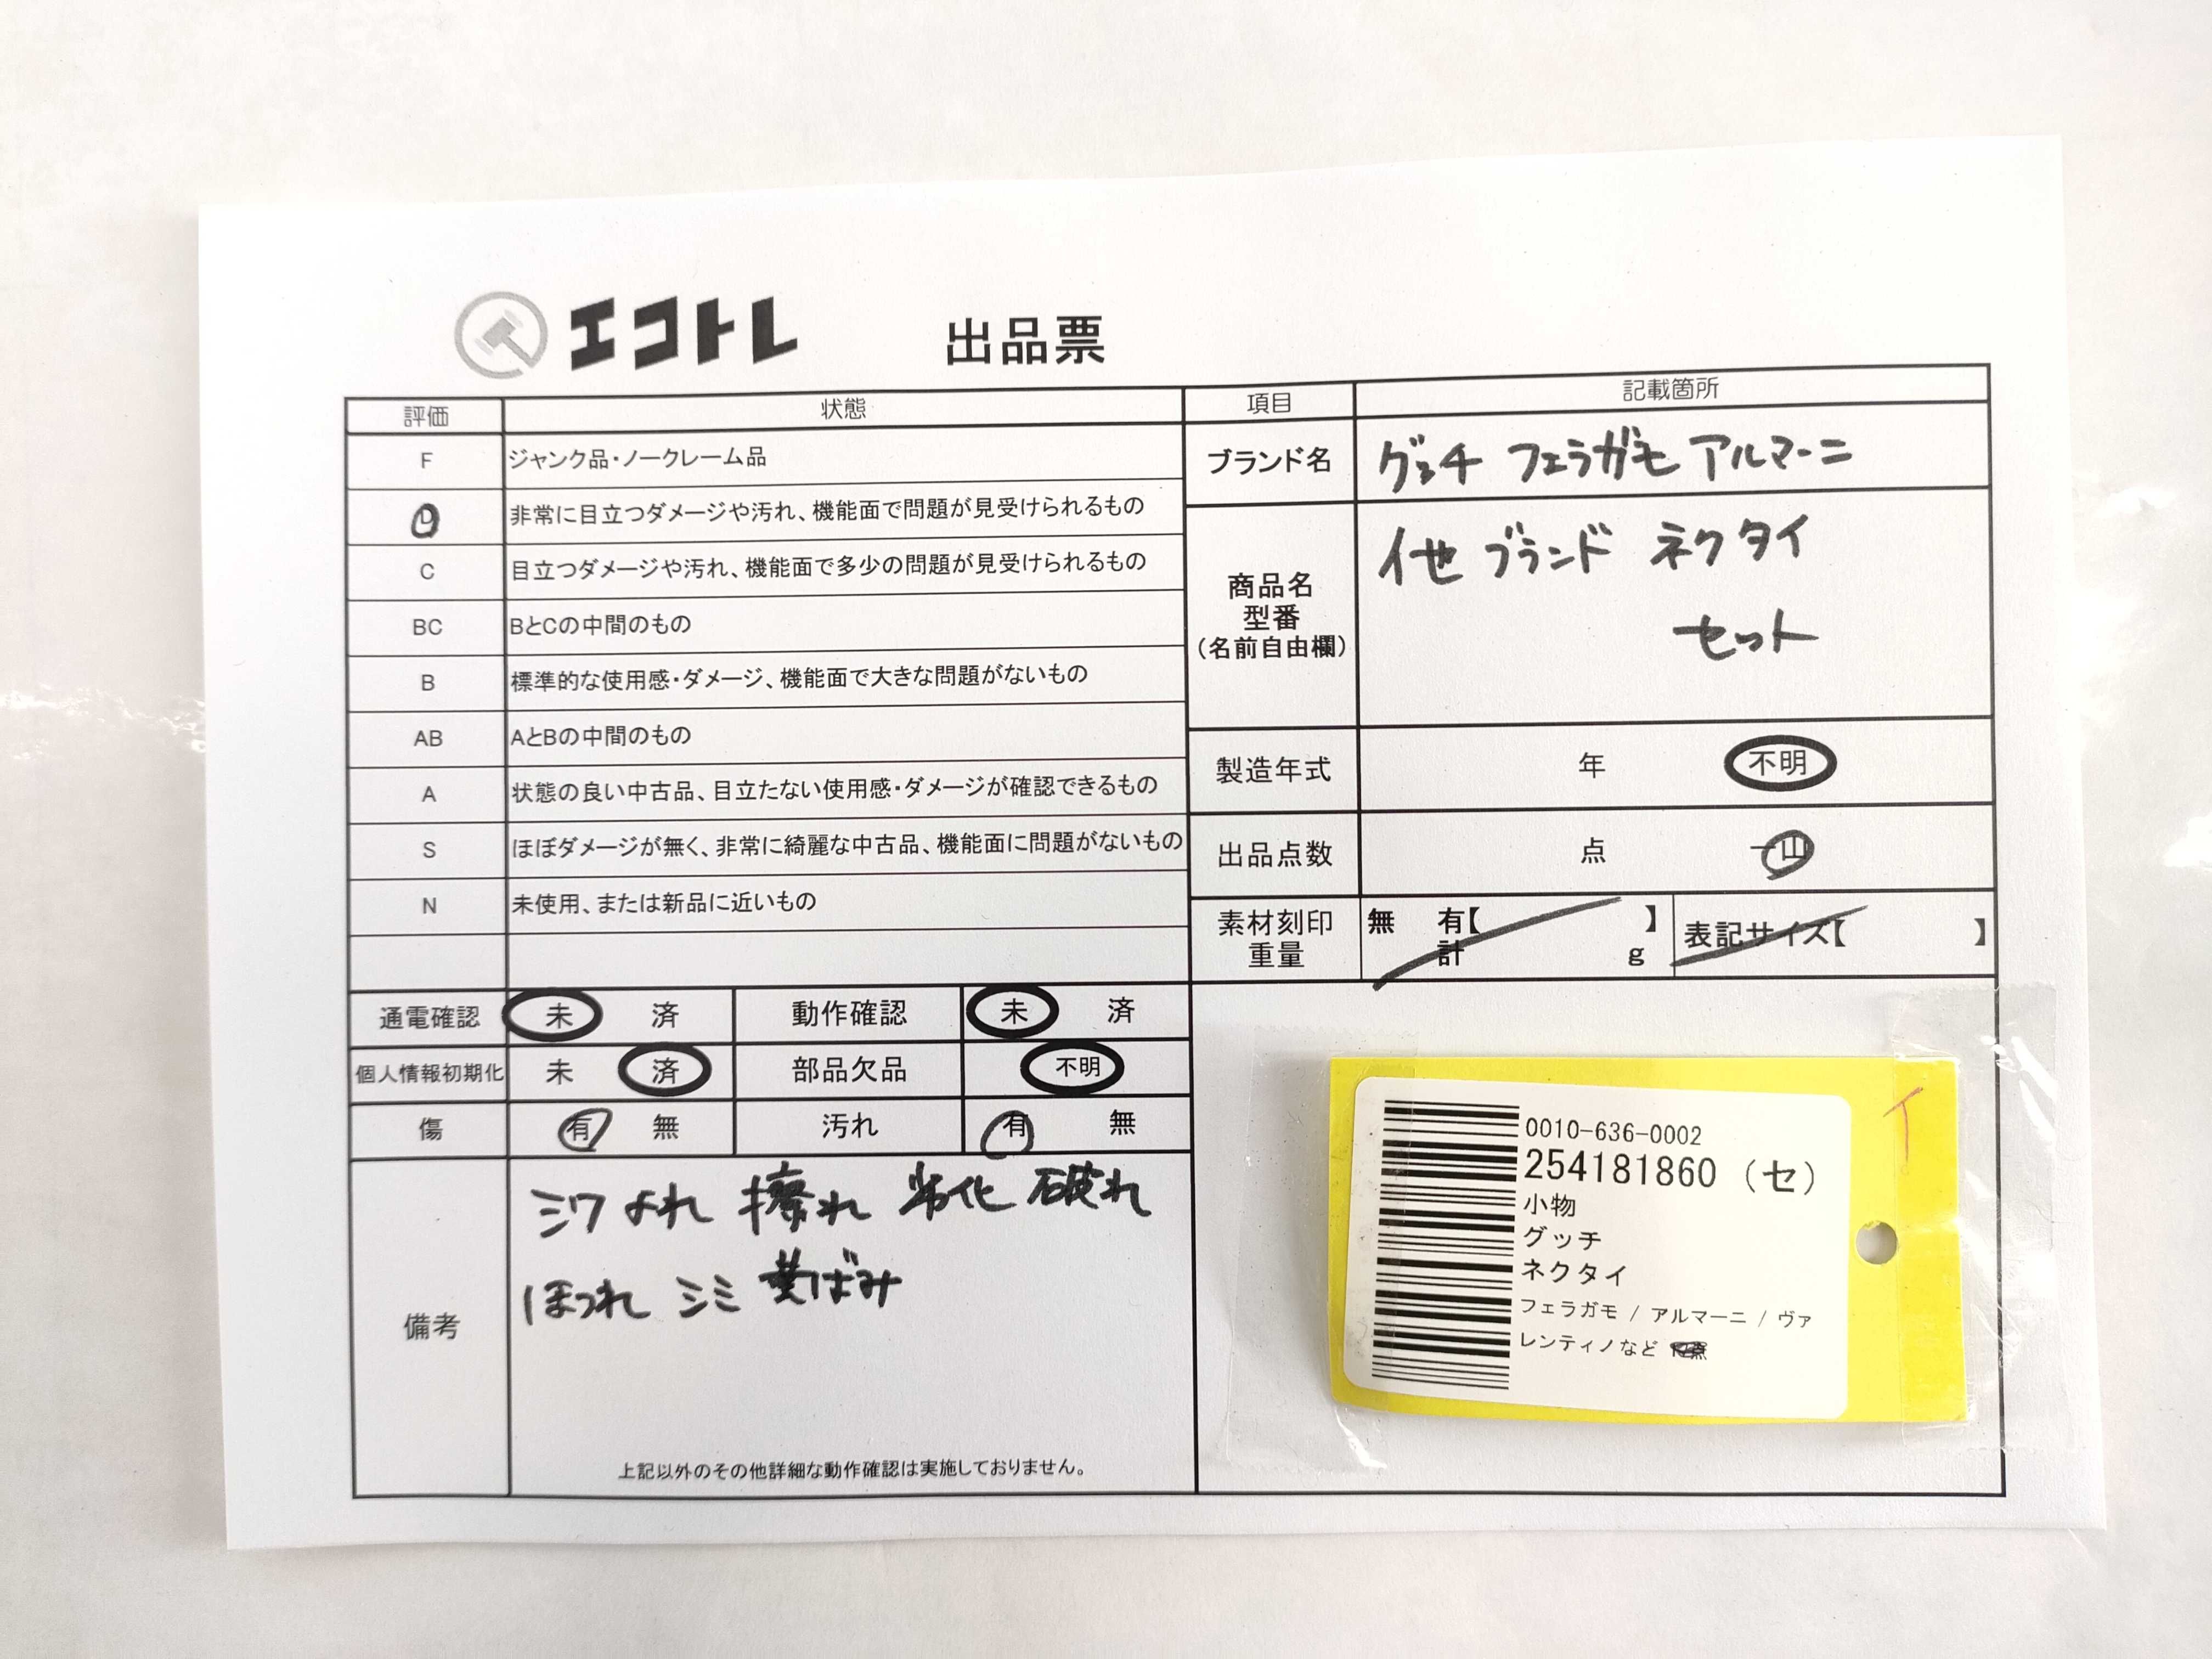 エコトレ 出品票
評価 状態
F ジャンク品・ノークレーム品
D 非常に目立つダメージや汚れ、機能面で問題が見受けられるもの
C 目立つダメージや汚れ、機能面で多少の問題が見受けられるもの
BC BとCの中間のもの
B 標準的な使用感・ダメージ、機能面で大きな問題がないもの
AB AとBの中間のもの
A 状態の良い中古品、目立たない使用感・ダメージが確認できるもの
S ほぼダメージが無く、非常に綺麗な中古品、機能面に問題がないもの
N 未使用、または新品に近いもの
通電確認 未 済 動作確認 未 済
個人情報初期化 未 済 部品欠品 不明
傷 有 無 汚れ 有 無
備考
シワ よれ 擦れ 劣化 破れ
ほつれ シミ 黄ばみ
上記以外のその他詳細な動作確認は実施しておりません。
項目 記載箇所
ブランド名 グッチ フェラガモ アルマーニ
商品名
型番
(名前自由欄)
他 ブランド ネクタイ
セット
製造年式 年 不明
出品点数 点 一山
素材刻印 無 有【 】 表記サイズ【 】
重量 計 g
0010-636-0002
254181860 (セ)
小物
グッチ
ネクタイ
フェラガモ / アルマーニ / ヴァ
レンティノなど